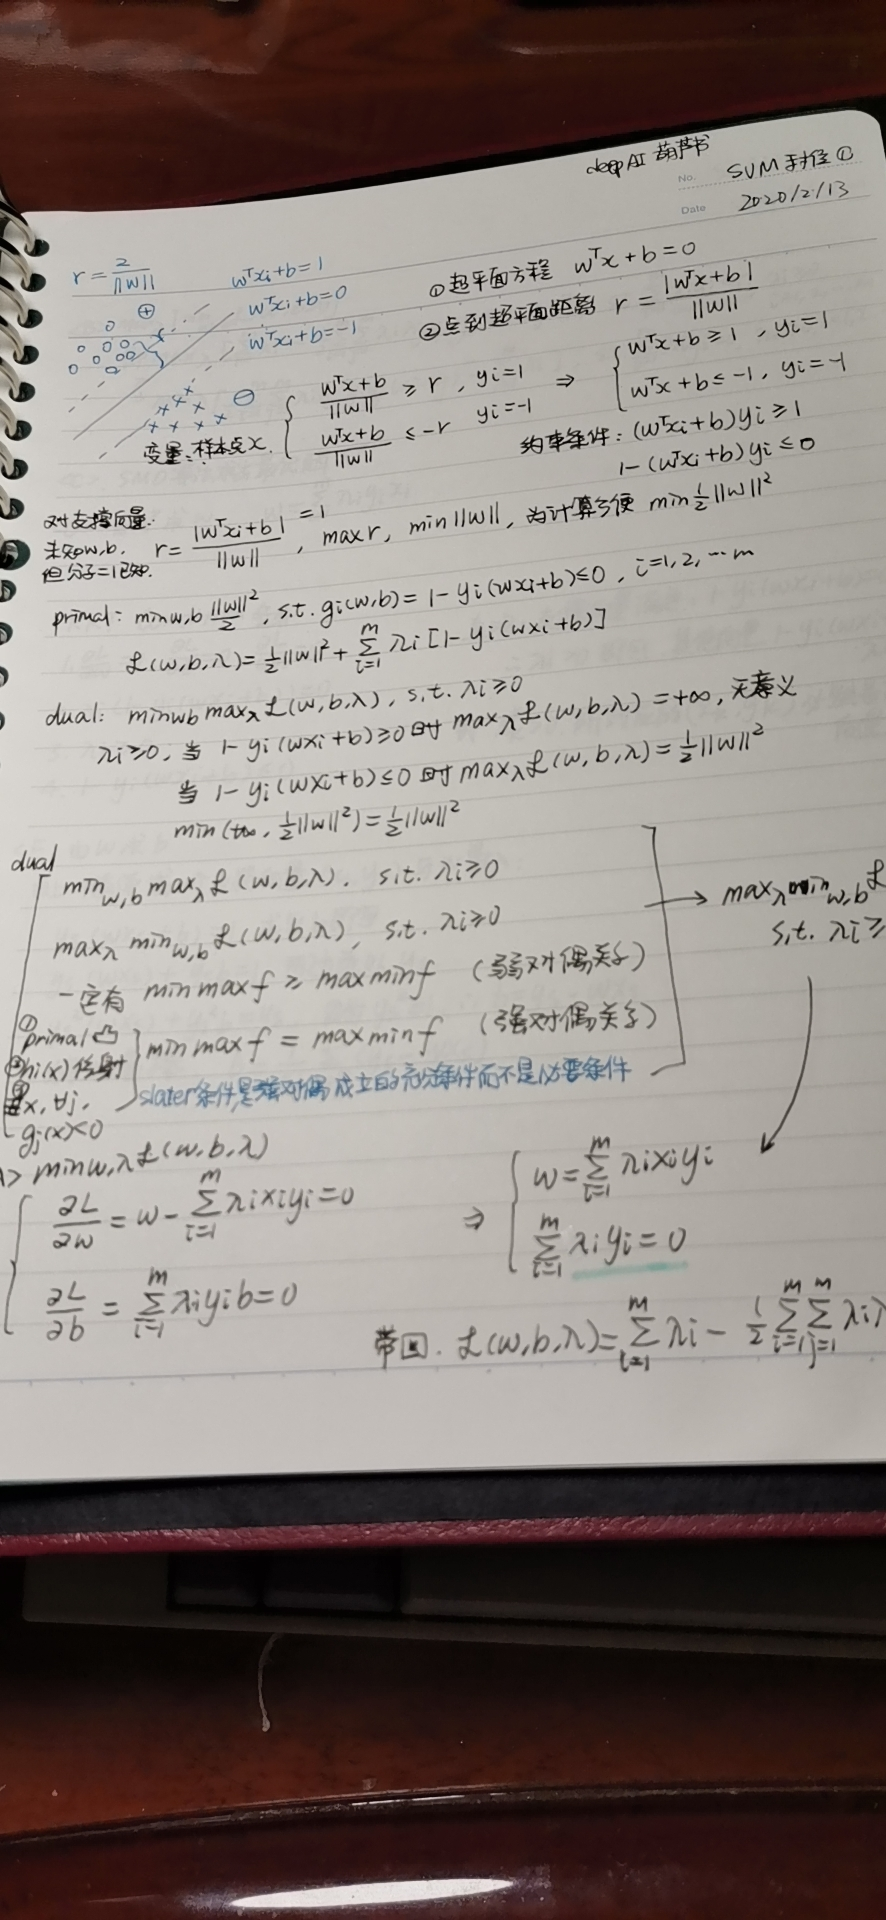 deep AI 葫芦书
No. SVM 手推①
Date 2020/2/13
r = 2/||w||
wᵀxi+b=1
wᵀxi+b=0
wᵀxi+b=-1
⊕
⊖
①超平面方程 wᵀx+b=0
②点到超平面距离 r = |wᵀx+b|/||w||
变量:样本点x.
{ (wᵀx+b)/||w|| ≥ r, yi=1 ⇒ { wᵀx+b≥1, yi=1
(wᵀx+b)/||w|| ≤ -r yi=-1 wᵀx+b≤-1, yi=-1
约束条件: (wᵀxi+b)yi≥1
1-(wᵀxi+b)yi≤0
对支撑向量.
未知w,b.
但分子=1已知.
r = |wᵀxi+b|/||w|| =1, max r, min||w||, 为计算方便 min ½||w||²
primal: min w,b ||w||²/2, s.t. gi(w,b)=1-yi(wxi+b)≤0, i=1,2,…m
ℒ(w,b,λ)=½||w||²+∑ᵢ₌₁ᵐ λi[1-yi(wxi+b)]
dual: min wb maxλ ℒ(w,b,λ), s.t. λi≥0
λi≥0, 当 1-yi(wxi+b)≥0时 maxλ ℒ(w,b,λ)=+∞, 无意义
当 1-yi(wxi+b)≤0时 maxλ ℒ(w,b,λ)=½||w||²
min(+∞, ½||w||²)=½||w||²
dual
min w,b maxλ ℒ(w,b,λ). s.t. λi≥0
maxλ min w,b ℒ(w,b,λ), s.t. λi≥0
→ maxλ min w,b ℒ
s.t. λi≥
一定有 min max f ≥ max min f (弱对偶关系)
①primal凸
②hi(x)仿射
③∃x, ∀j,
gj(x)<0
min max f = max min f (强对偶关系)
slater条件是强对偶成立的充分条件而不是必要条件
> min w,λ ℒ(w,b,λ)
{ ∂L/∂w = w-∑ᵢ₌₁ᵐ λixiyi=0
∂L/∂b = ∑ᵢ₌₁ᵐ λiyib=0
⇒ { w=∑ᵢ₌₁ᵐ λixiyi
∑ᵢ₌₁ᵐ λiyi=0
带回. ℒ(w,b,λ)=∑ᵢ₌₁ᵐ λi - ½∑ᵢ₌₁ᵐ∑ⱼ₌₁ᵐ λiλ